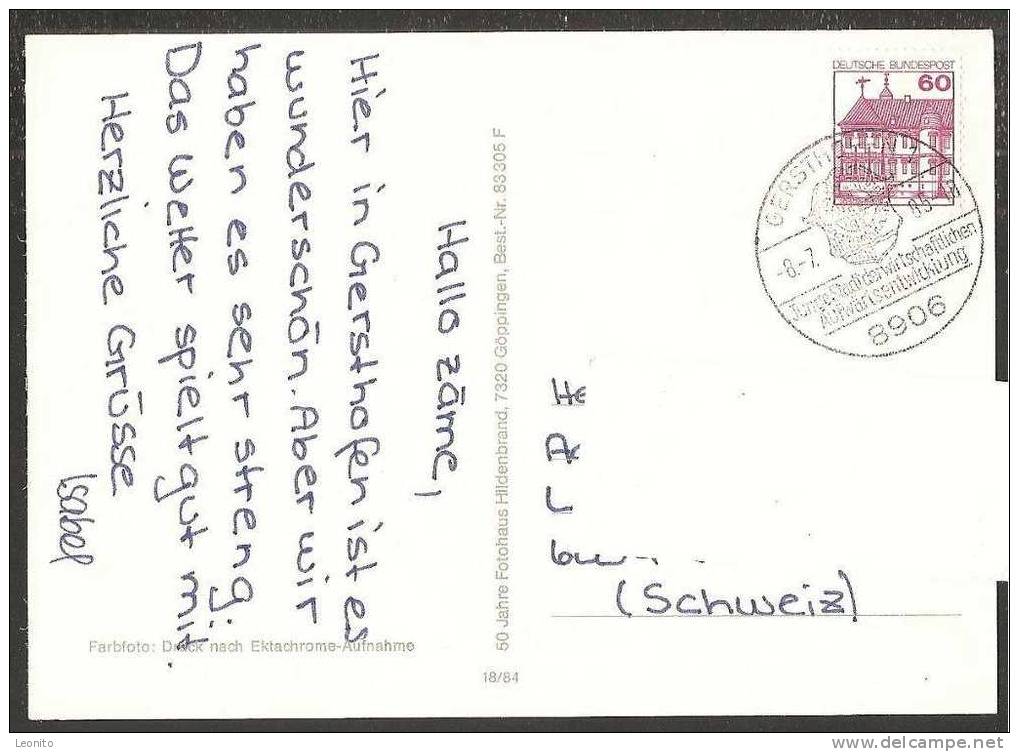 Hallo zäme,
Hier in Gersthofen ist es
wunderschön. Aber wir
haben es sehr streng.
Das Wetter spielt gut mit.
Herzliche Grüsse
Isabel
Farbfoto: Druck nach Ektachrome-Aufnahme
50 Jahre Fotohaus Hildenbrand, 7320 Göppingen, Best.-Nr. 83305 F
18/84
DEUTSCHE BUNDESPOST
60
-8.-7.
Junge Stadt der wirtschaftlichen
Aufwärtsentwicklung
8906
(Schweiz)
Leonito
www.delcampe.net